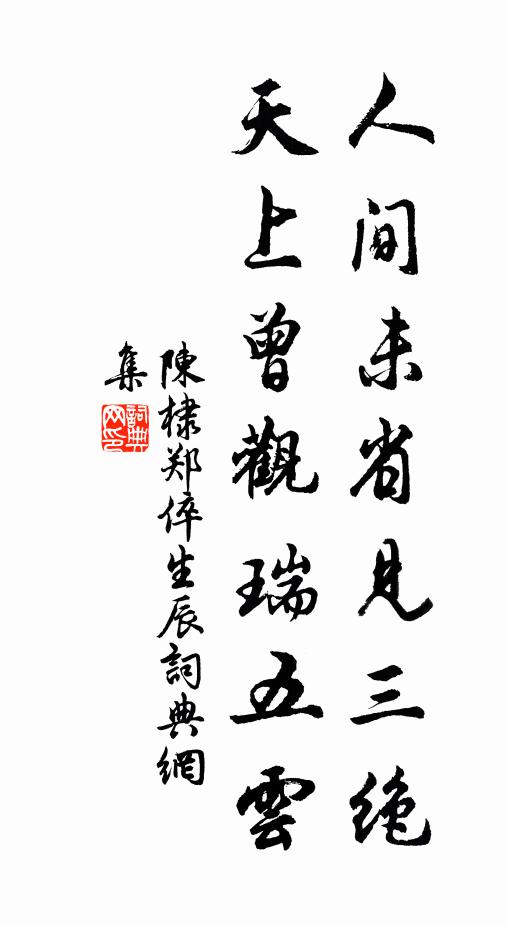 人间未省見三绝
天上曾觀瑞五雲
陳棣郑倅生辰詞典網
集
詞典网印